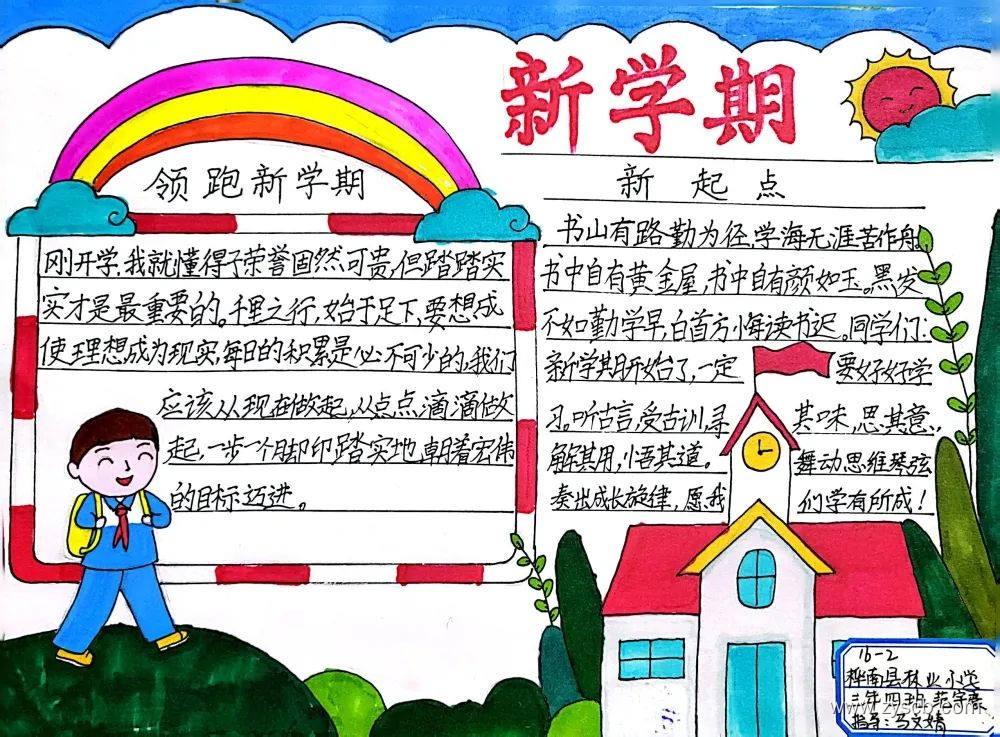 新学期
领跑新学期
刚开学,我就懂得了荣誉固然可贵,但踏踏实
实才是最重要的。千里之行,始于足下,要想成
使理想成为现实,每日的积累是必不可少的,我们
应该从现在做起,从点点滴滴做
起,一步一个脚印踏实地朝着宏伟
的目标迈进。
新起点
书山有路勤为径,学海无涯苦作舟,
书中自有黄金屋,书中自有颜如玉。黑发
不如勤学早,白首方悔读书迟。同学们:
新学期开始了,一定要好好学
习。听古言,受古训,寻其味,思其意、
解其用,悟其道。舞动思维琴弦
奏出成长旋律,愿我们学有所成!
16-2
桦南县林业小学
三年四班
指导:马文婧